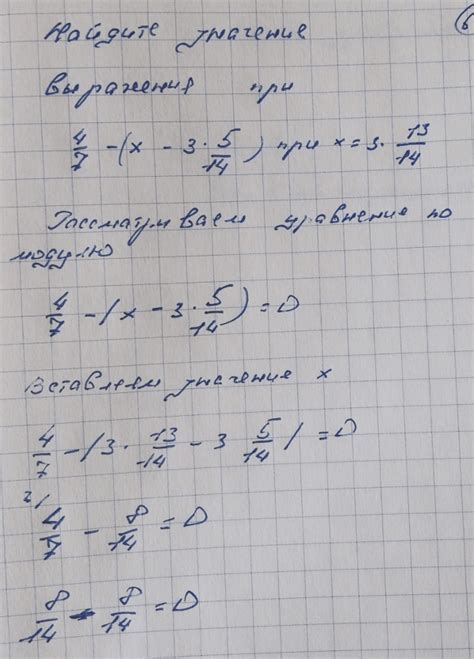 Найдите значение
выражения при
4/7 - (x - 3 · 5/14) при x = 3 · 13/14
Рассматриваем уравнение по
модулю
4/7 - (x - 3 · 5/14) = 0
Вставляем значение x
4/7 - (3 · 13/14 - 3 5/14) = 0
2/ 4/7 - 8/14 = 0
8/14 - 8/14 = 0